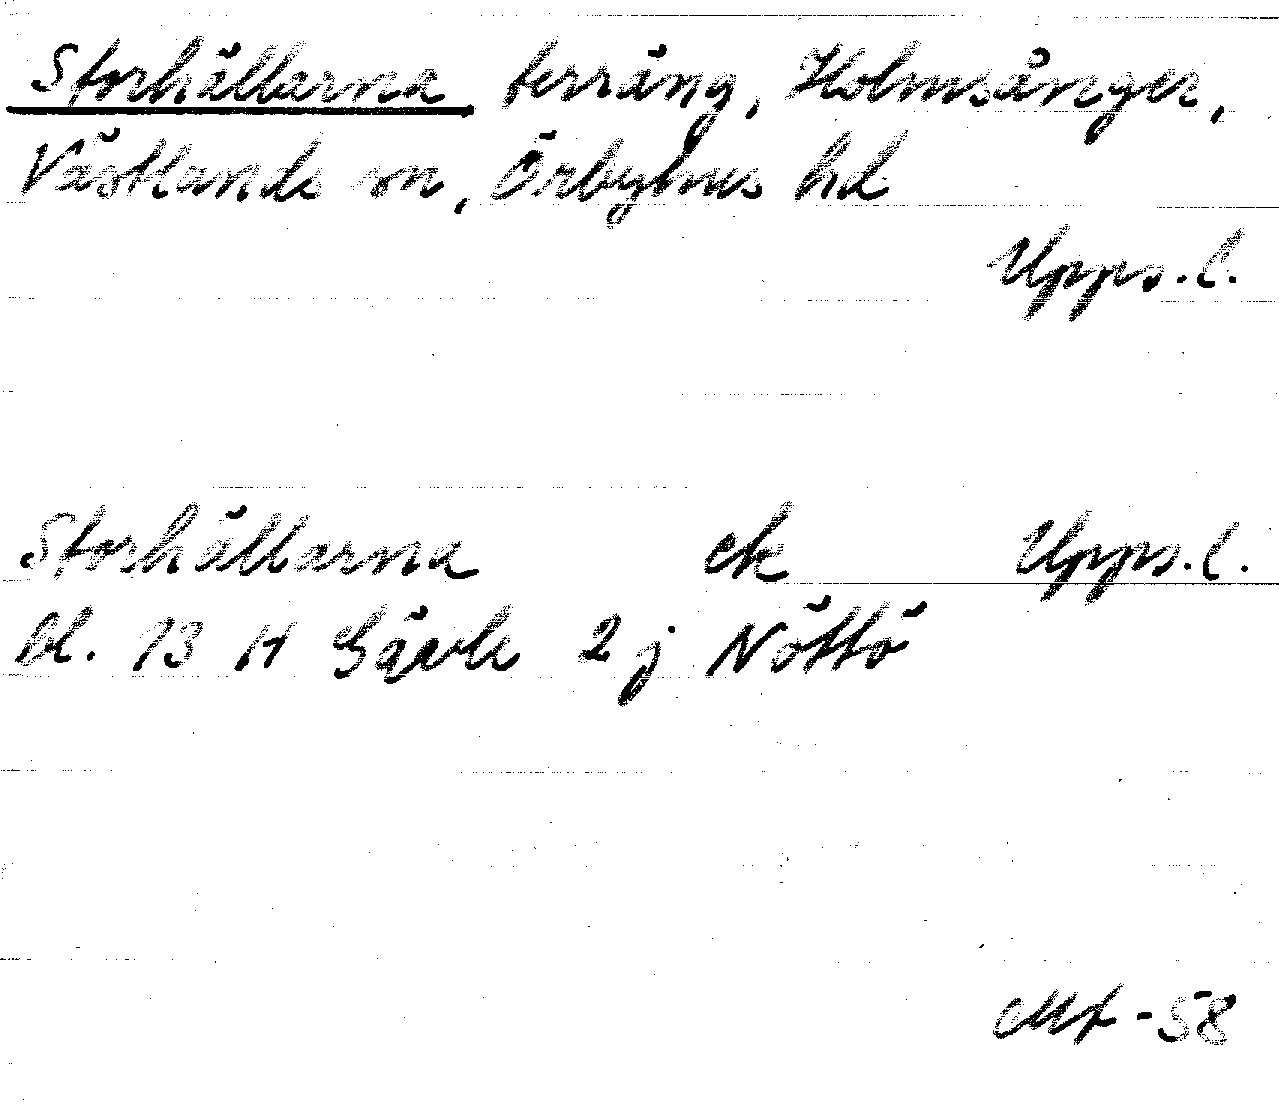 Storhällarna terräng, Holmsånger,
Västlands sn, Örbyhus hd
Upps.l.
Storhällarna ek Upps.l.
bl. 13 H Gävle 2 j Nöttö
-58